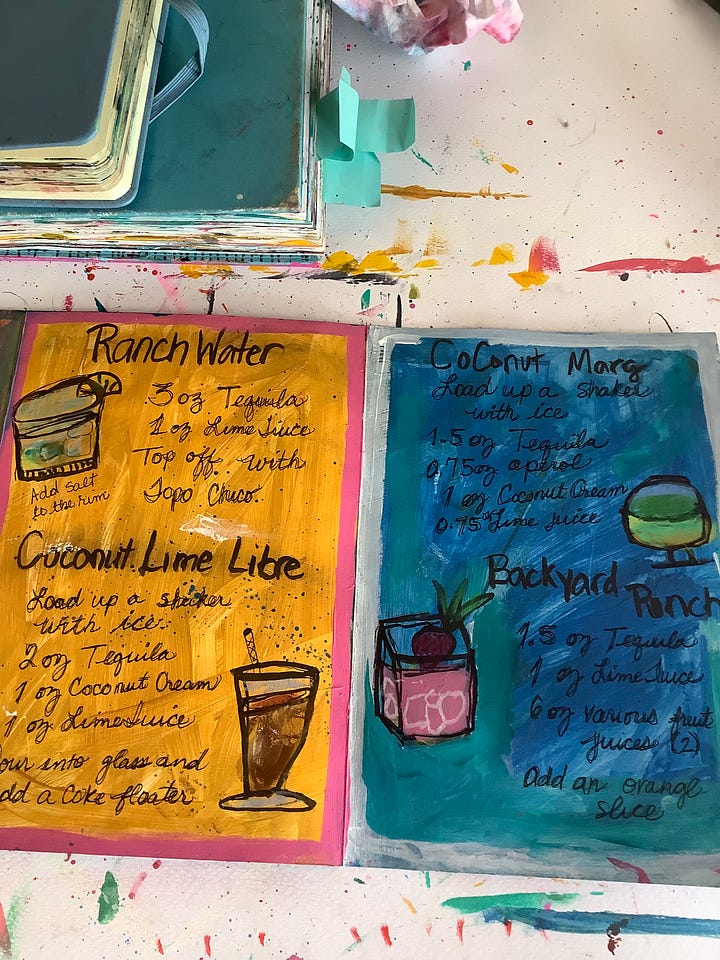 Ranch Water
3 oz Tequila
1 oz Lime Juice
Top off with
Topo Chico.
Add salt
to the rim
Coconut Lime Libre
Load up a shaker
with ice.
2 oz Tequila
1 oz Coconut Cream
1 oz Lime Juice
our into glass and
dd a Coke floater
Coconut Marg
Load up a shaker
with ice
1.5 oz Tequila
0.75 oz aperol
1 oz Coconut Cream
0.75 oz Lime juice
Backyard Punch
1.5 oz Tequila
1 oz Lime Juice
6 oz various fruit
juices (2)
Add an orange
slice